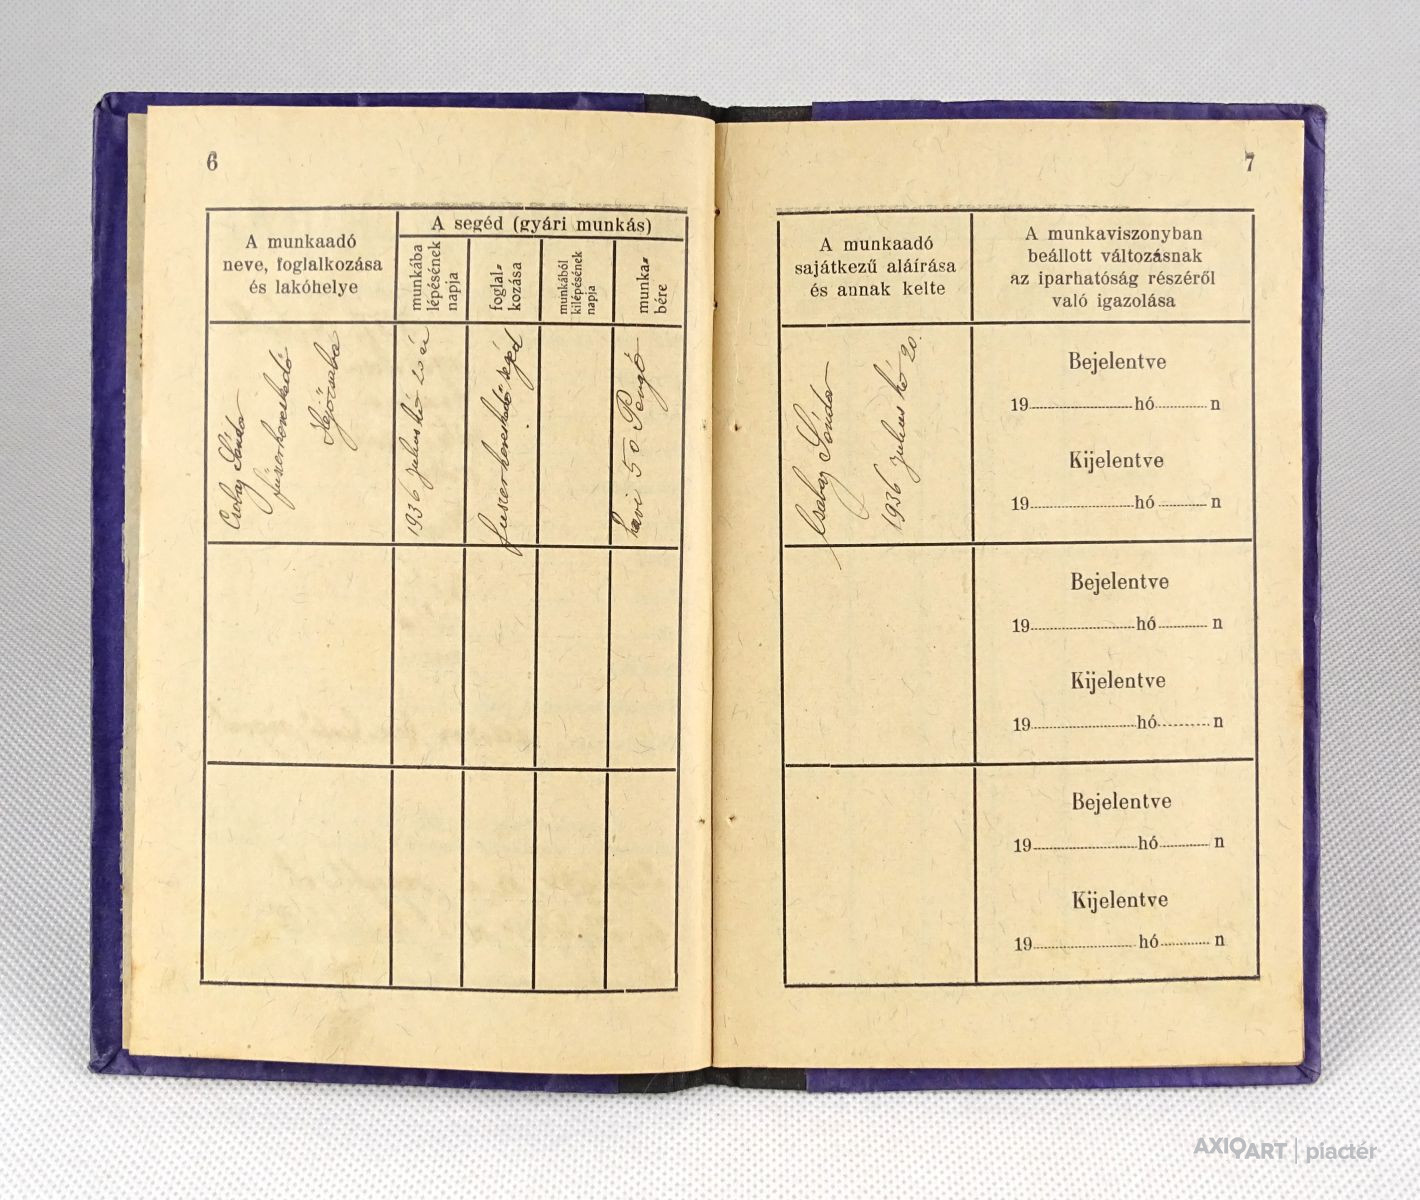 6
A munkaadó
neve, foglalkozása
és lakóhelye
A segéd (gyári munkás)
munkába
lépésének
napja
foglal-
kozása
munkából
kilépésének
napja
munka-
bére
Csabay Sándor
fűszerkereskedő
Sajócsaba
1936 julius hó 20 án
fuszerkereskedő segéd
havi 50 Pengő
7
A munkaadó
sajátkezű aláírása
és annak kelte
A munkaviszonyban
beállott változásnak
az iparhatóság részéről
való igazolása
Csabay Sándor
1936 julius hó 20.
Bejelentve
19 hó n
Kijelentve
19 hó n
Bejelentve
19 hó n
Kijelentve
19 hó n
Bejelentve
19 hó n
Kijelentve
19 hó n
AXIOART | piactér